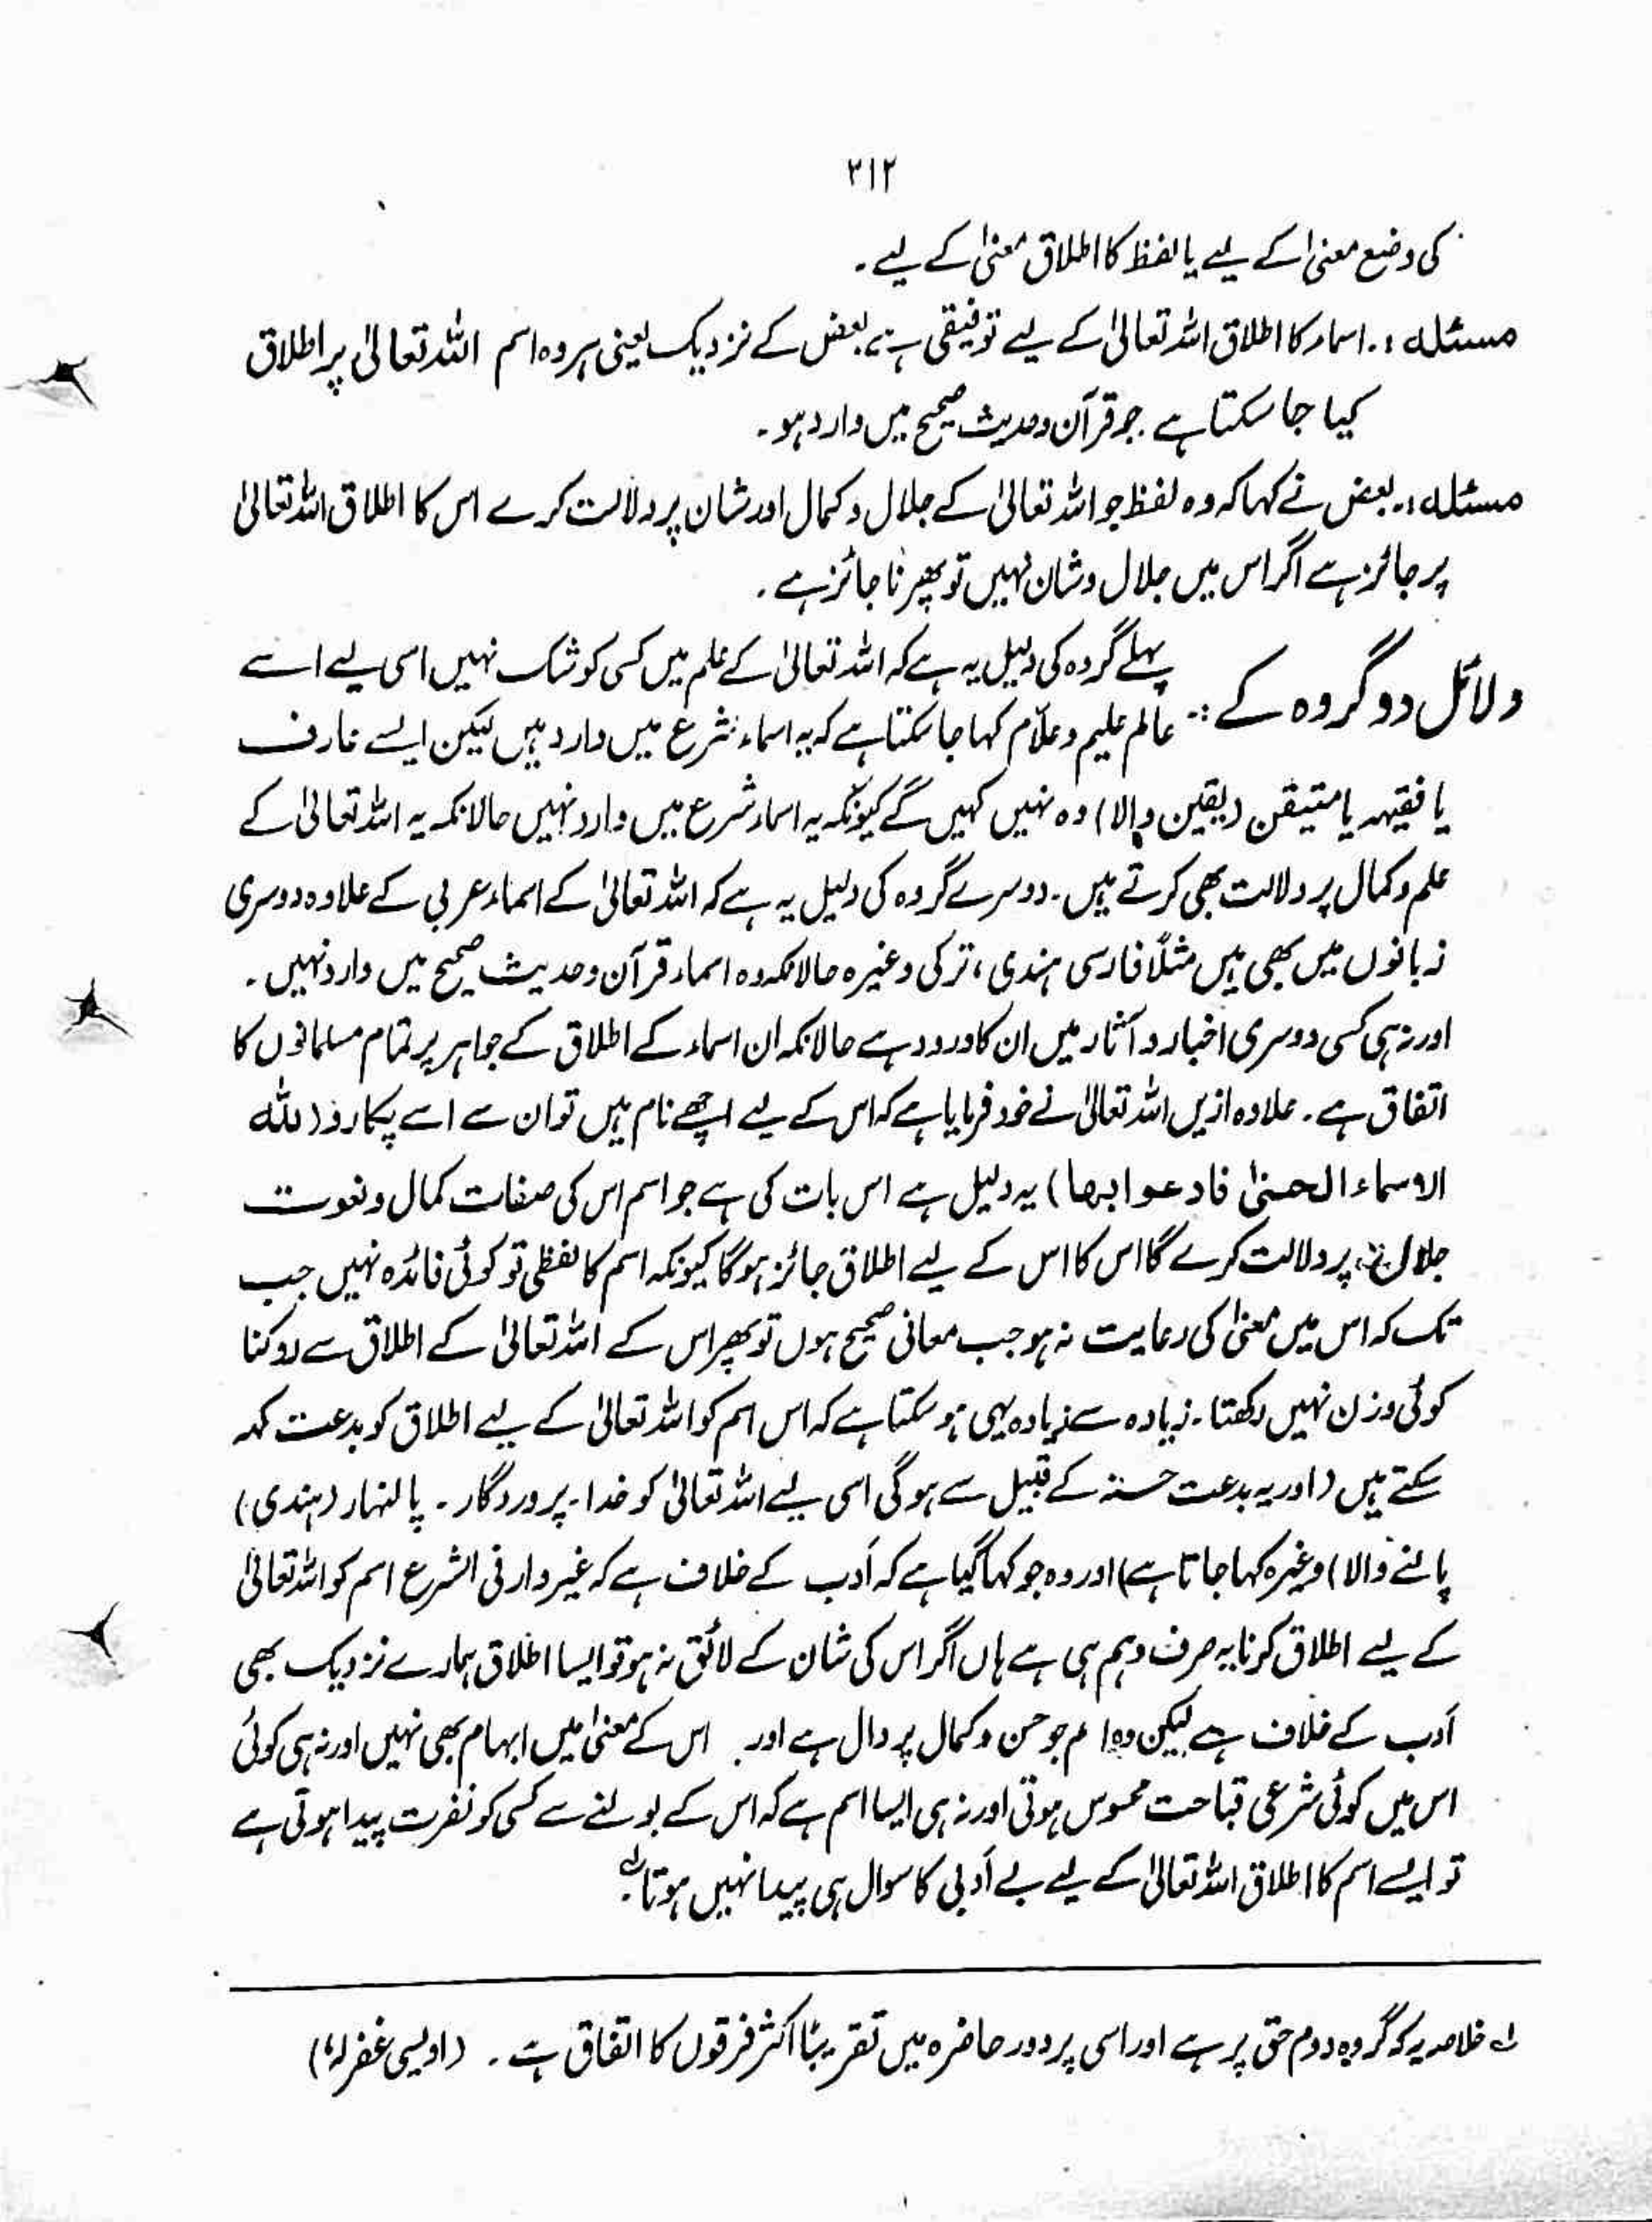 ۳۱۲
کی وضع معنیٰ کے لیے یا لفظ کا اطلاق معنیٰ کے لیے ۔
مسئلہ :. اسماء کا اطلاق اللہ تعالیٰ کے لیے توفیقی ہے بعض کے نزدیک یعنی ہر وہ اسم اللہ تعالیٰ پر اطلاق
کیا جا سکتا ہے جو قرآن و حدیث صحیح میں وارد ہو ۔
مسئلہ :. بعض نے کہا کہ وہ لفظ جو اللہ تعالیٰ کے جلال و کمال اور شان پر دلالت کرے اس کا اطلاق اللہ تعالیٰ
پر جائز ہے اگر اس میں جلال و شان نہیں تو پھر ناجائز ہے ۔
دلائل دو گروہ کے :- پہلے گروہ کی دلیل یہ ہے کہ اللہ تعالیٰ کے علم میں کسی کو شک نہیں اسی لیے اسے
عالم علیم و علّام کہا جا سکتا ہے کہ یہ اسماء شرع میں وارد ہیں لیکن ایسے عارف
یا فقیہہ یا متیقن (یقین والا) وہ نہیں کہیں گے کیونکہ یہ اسماء شرع میں وارد نہیں حالانکہ یہ اللہ تعالیٰ کے
علم و کمال پر دلالت بھی کرتے ہیں ۔ دوسرے گروہ کی دلیل یہ ہے کہ اللہ تعالیٰ کے اسماء عربی کے علاوہ دوسری
زبانوں میں بھی ہیں مثلاً فارسی ہندی ، ترکی وغیرہ حالانکہ وہ اسماء قرآن و حدیث صحیح میں وارد نہیں ۔
اور نہ ہی کسی دوسری اخبار و آثار میں ان کا ورود ہے حالانکہ ان اسماء کے اطلاق کے جواہر پر تمام مسلمانوں کا
اتفاق ہے ۔ علاوہ ازیں اللہ تعالیٰ نے خود فرمایا ہے کہ اس کے لیے اچھے نام ہیں تو ان سے اسے پکارو (للہ
الاسماء الحسنیٰ فادعوا بہا) یہ دلیل ہے اس بات کی ہے جو اسم اس کی صفات کمال و نعوت
جلال پر دلالت کرے گا اس کا اس کے لیے اطلاق جائز ہوگا کیونکہ اسم کا لفظی تو کوئی فائدہ نہیں جب
تک کہ اس میں معنیٰ کی رعایت نہ ہو جب معانی صحیح ہوں تو پھر اس کے اللہ تعالیٰ کے اطلاق سے روکنا
کوئی وزن نہیں رکھتا ۔ زیادہ سے زیادہ یہی ہو سکتا ہے کہ اس اسم کو اللہ تعالیٰ کے لیے اطلاق کو بدعت کہہ
سکتے ہیں (اور یہ بدعت حسنہ کے قبیل سے ہوگی اسی لیے اللہ تعالیٰ کو خدا ۔ پروردگار ۔ پالنہار (ہندی)
پالنے والا) وغیرہ کہا جاتا ہے) اور وہ جو کہا گیا ہے کہ اَدب کے خلاف ہے کہ غیر وارد فی الشرع اسم کو اللہ تعالیٰ
کے لیے اطلاق کرنا یہ صرف وہم ہی ہے ہاں اگر اس کی شان کے لائق نہ ہو تو ایسا اطلاق ہمارے نزدیک بھی
اَدب کے خلاف ہے لیکن وہ جو حسن و کمال پر دال ہے اور اس کے معنیٰ میں ابہام بھی نہیں اور نہ ہی کوئی
اس میں کوئی شرعی قباحت محسوس ہوتی اور نہ ہی ایسا اسم ہے کہ اس کے بولنے سے کسی کو نفرت پیدا ہوتی ہے
تو ایسے اسم کا اطلاق اللہ تعالیٰ کے لیے بے اَدبی کا سوال ہی پیدا نہیں ہوتا ۔ لہ
لہ خلاصہ یہ کہ گروہ دوم حق پر ہے اور اسی پر دور حاضرہ میں تقریبًا اکثر فرقوں کا اتفاق ہے ۔ (اویسی غفرلہٗ)